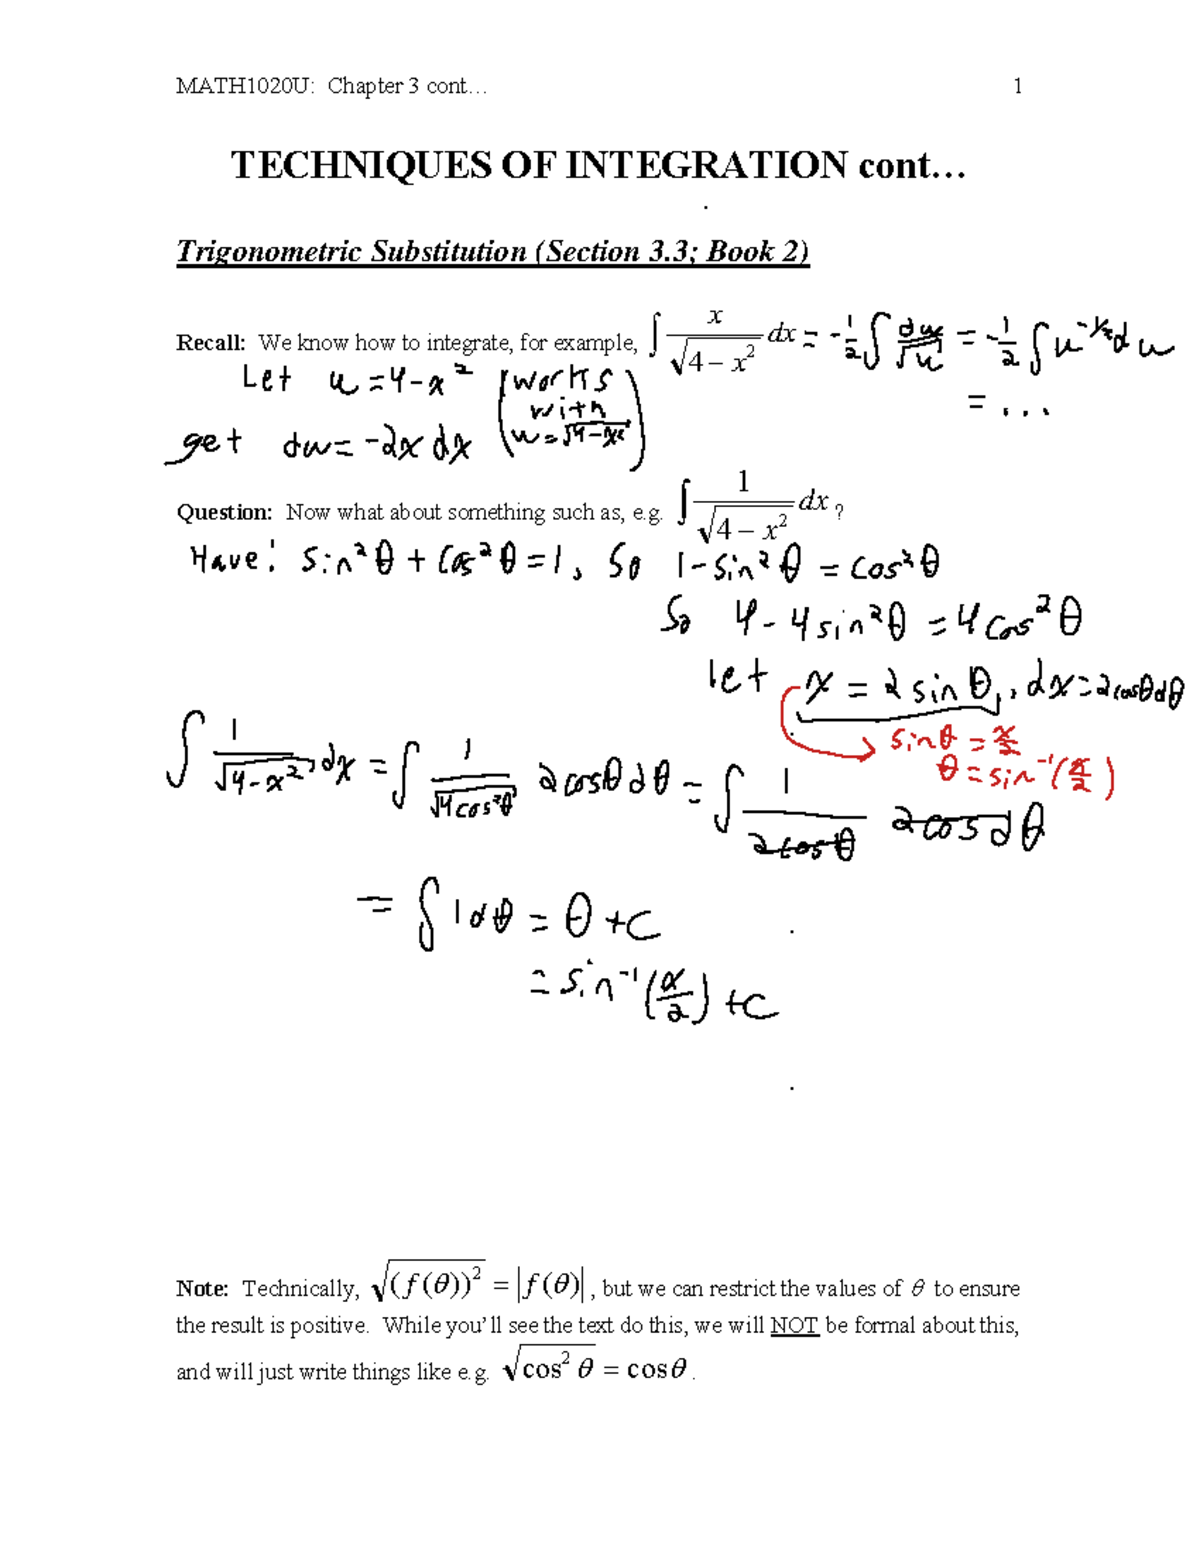 MATH1020U: Chapter 3 cont… 1
TECHNIQUES OF INTEGRATION cont…
Trigonometric Substitution (Section 3.3; Book 2)
Recall: We know how to integrate, for example, ∫ x/√(4 − x²) dx = -1/2 ∫ du/√u = -1/2 ∫ u^(-1/2) du
Let u = 4 - x² (works with u = √(4-x²)) = ...
get du = -2x dx
Question: Now what about something such as, e.g. ∫ 1/√(4 − x²) dx ?
Have: sin²θ + cos²θ = 1, So 1 - sin²θ = cos²θ
So 4 - 4sin²θ = 4cos²θ
let x = 2 sin θ, dx = 2cosθdθ
sinθ = x/2
θ = sin⁻¹(x/2)
∫ 1/√(4-x²) dx = ∫ 1/√(4cos²θ) 2cosθdθ = ∫ 1/(2cosθ) 2cos dθ
= ∫ 1dθ = θ + C
= sin⁻¹(x/2) + C
Note: Technically, √((f(θ))²) = |f(θ)|, but we can restrict the values of θ to ensure
the result is positive. While you'll see the text do this, we will NOT be formal about this,
and will just write things like e.g. √(cos² θ) = cosθ.